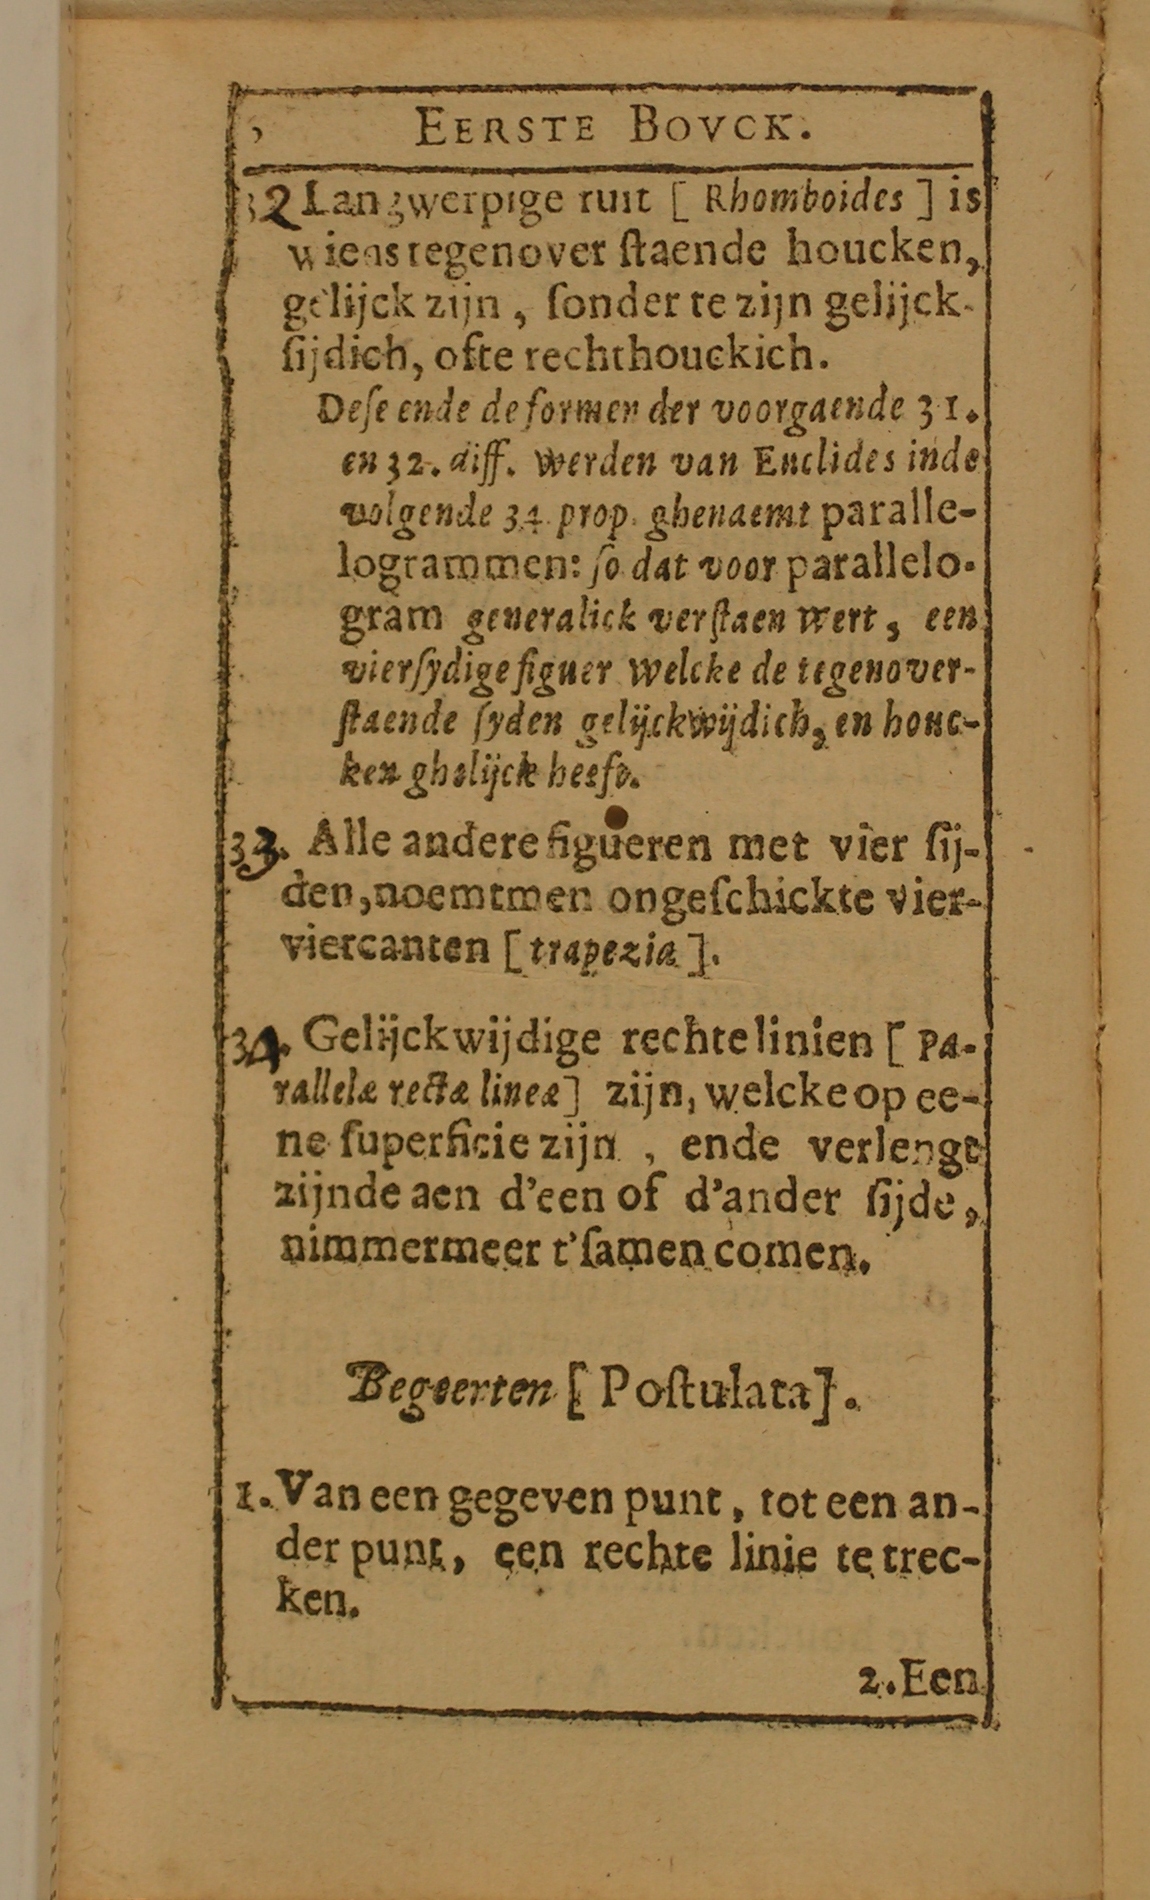 EERSTE BOVCK.
32 Langwerpige ruit [ Rhomboides ] is
wiens tegenover ſtaende houcken,
gelijck zijn, ſonder te zijn gelijck-
ſijdich, ofte rechthouckich.
Deſe ende de formen der voorgaende 31.
en 32. diff. werden van Euclides inde
volgende 34. prop. ghenaemt paralle-
logrammen: ſo dat voor parallelo-
gram generalick verſtaen wert, een
vierſydige figuer welcke de tegenover-
ſtaende ſyden gelijckwijdich, en houc-
ken ghelijck heeft.
33. Alle andere figueren met vier ſij-
den, noemtmen ongeſchickte vier-
viercanten [ trapezia ].
34. Gelijckwijdige rechte linien [ Pa-
rallelæ rectæ lineæ ] zijn, welcke op ee-
ne ſuperficie zijn, ende verlengt
zijnde aen d'een of d'ander ſijde,
nimmermeer t'ſamen comen.
Begeerten [ Poſtulata ].
1. Van een gegeven punt, tot een an-
der punt, een rechte linie te trec-
ken.
2. Een